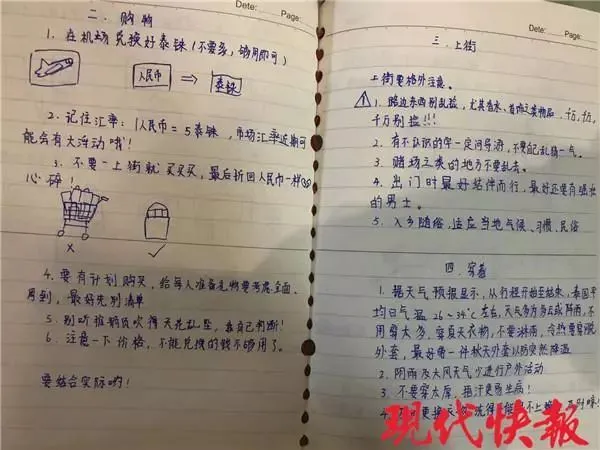 Date: Page:
二、购物
1. 在机场兑换好泰铢(不要多,够用即可)
人民币 ⇒ 泰铢
2. 记住汇率:1人民币=5泰铢,市场汇率近期可
能会有大浮动哦!
3. 不要一上街就买买买,最后折回人民币一样
心碎!
× ✓
4. 要有计划购买,给每人准备礼物要考虑全面、
周到,最好先列清单
5. 别听推销员吹得天花乱坠,靠自己判断!
6. 注意一下价格,不能兑换的钱不够用了。
要结合实际哟!
Date: Page:
三、上街
上街要格外注意。
1. 路边东西别乱捡,尤其香水、首饰之类物品,千万,千万,
千万别捡!!!
2. 有不认识的牢一定问导游,不要乱搞一气。
3. 赌场之类的地方不要乱去。
4. 出门时最好结伴而行,最好还要有强壮
的男士。
5. 入乡随俗,适应当地气候、习惯、民俗
四、穿着
1. 据天气预报显示,从行程开始至结束,泰国平
均日气温26~34℃左右,天气多为多云或阵雨,不
用穿太多,穿夏天衣物,不要淋雨,令热要穿脱
外套,最好带一件秋天外套以防突然降温
2. 阴雨及大风天气少进行户外活动
3. 不要穿太厚,捂汗更易生病!
4.
现代快报